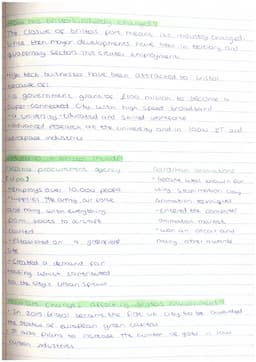 How has bristols industry changed?
The closure of bristols port means its industry changed.
Since then major developments have been in tertiary and
quaternary sectors this creates employment.
High tech businesses have been attracted to bristol
because of:
- a government grant of £100 million to become a
super-connected city with high speed broadband
- a university-educated and skilled workforce
- advanced research at the university and in local IT and
aerospace industries
Defence procurement agency
(dpa)
- employs over 10,000 people
- supplies the army, air force
and navy with everything
from boots to aircraft
carriers
- established on a greenfield
site
- created a demand for
housing which contributed
to the city's urban sprawl
Aardman animations
- became best known for
using stopmotion clay
animation techniques
- entered the computer
animation market
- won an oscar and
many other awards
How are changes affecting bristols environment?
- In 2015 bristol became the first uk city to be awarded
the status of european green capital
- It also plans to increase the number of jobs in low
carbon industries